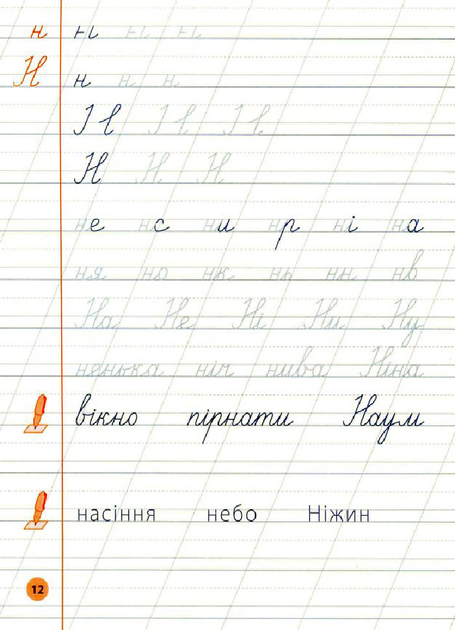 н н н н
Н н н н
Н Н Н
Н Н Н
не нс ни нр ні на
ня но нк нь нн нв
На Не Ні Ни Ну
ненька ніч нива Ніна
вікно пірнати Наум
насіння небо Ніжин
12